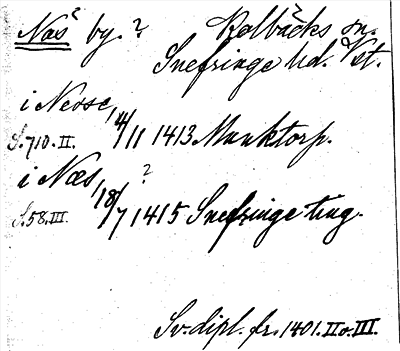 Näs? by.? Kolbäcks sn.
Snefringe hd. Vst.
i Nedsse, 14/11 1413 Munktorp.
S. 710. II.
i Næs, 18/7 1415 Snefringe ting.
?
S. 58. III.
Sv. dipl. fr. 1401. II o. III.